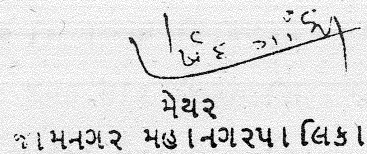 મેયર
જામનગર મહાનગરપાલિકા